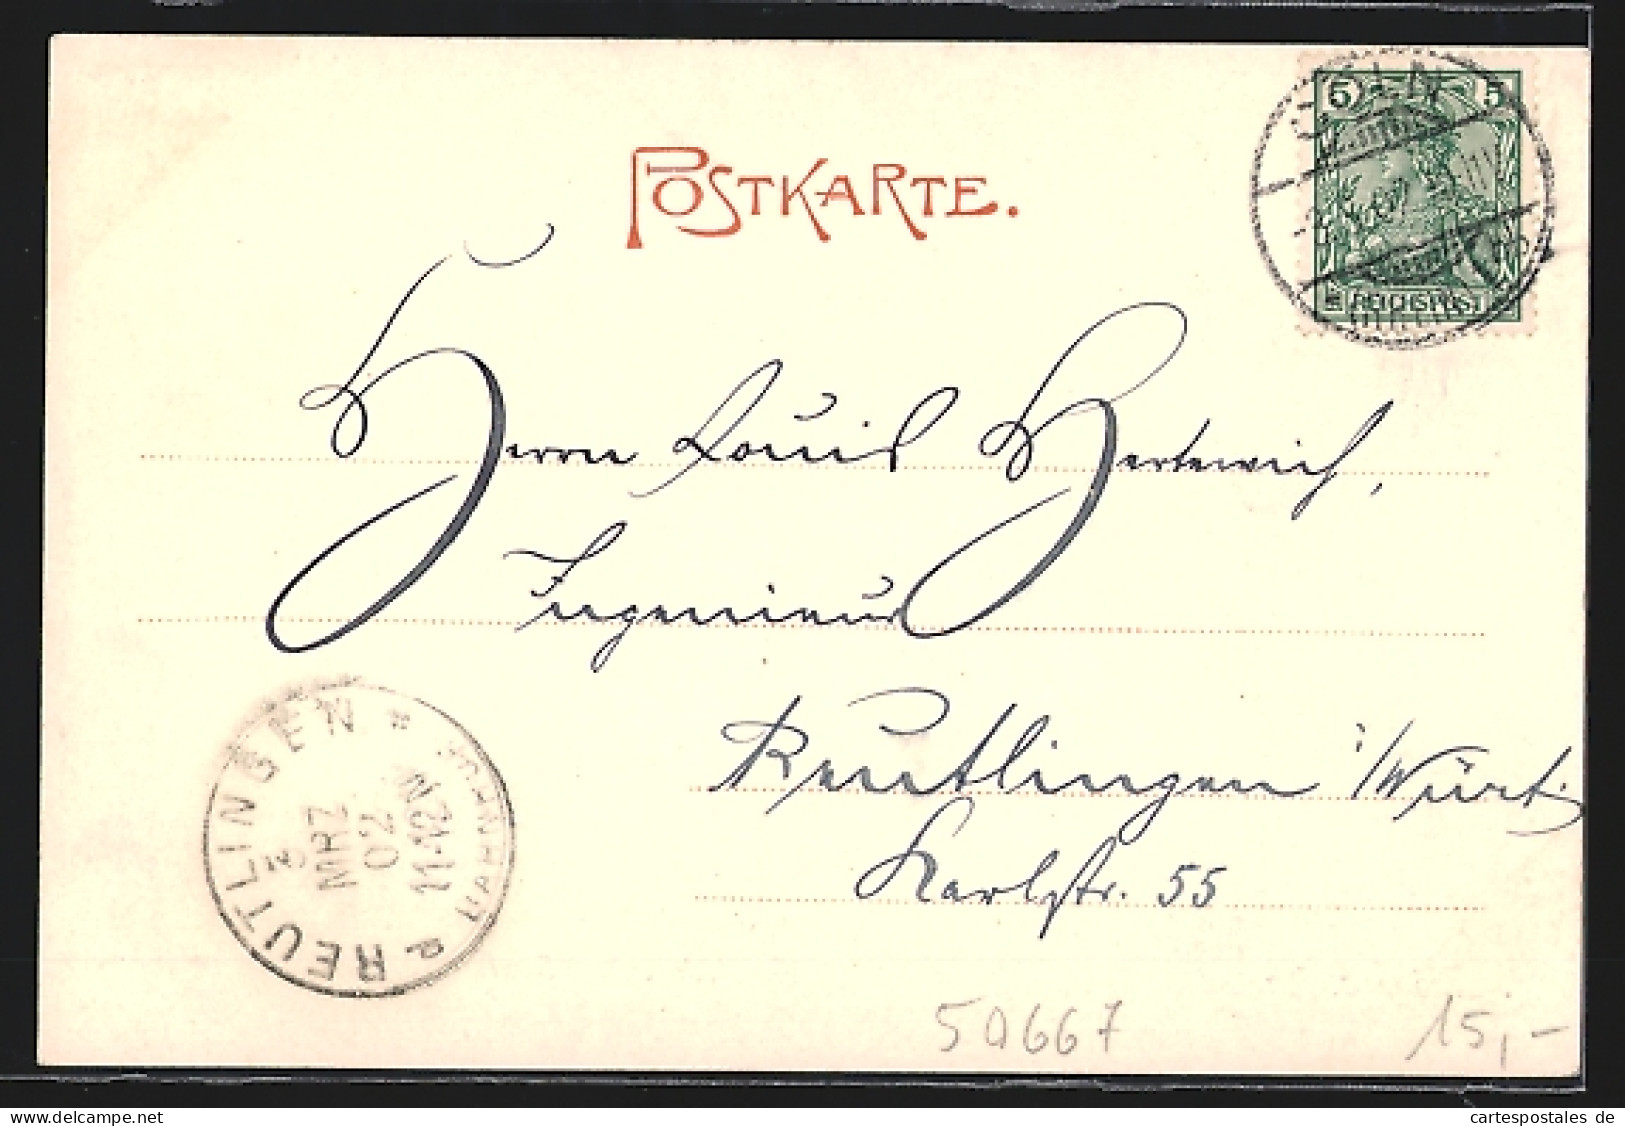 POSTKARTE.
CÖLN
5 5
REICHSPOST
Herrn Louis
Ingenieur
Reutlingen i/Württ.
Karlstr. 55
REUTLINGEN
MRZ
02
11-12N
BAHNHOF
50667
15,-
www.cartespostales.de